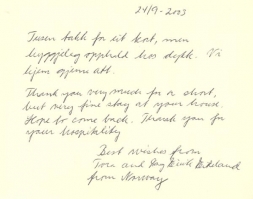 24/9-2003
Tusen takk for eit kort, men
hyggjeleg opphald hos dykk. Vi
kjem gjerne att.
Thank you very much for a short,
but very fine stay at your house.
Hope to come back. Thank you for
your hospitality
Best wishes from
Tora and Dag
from Norway